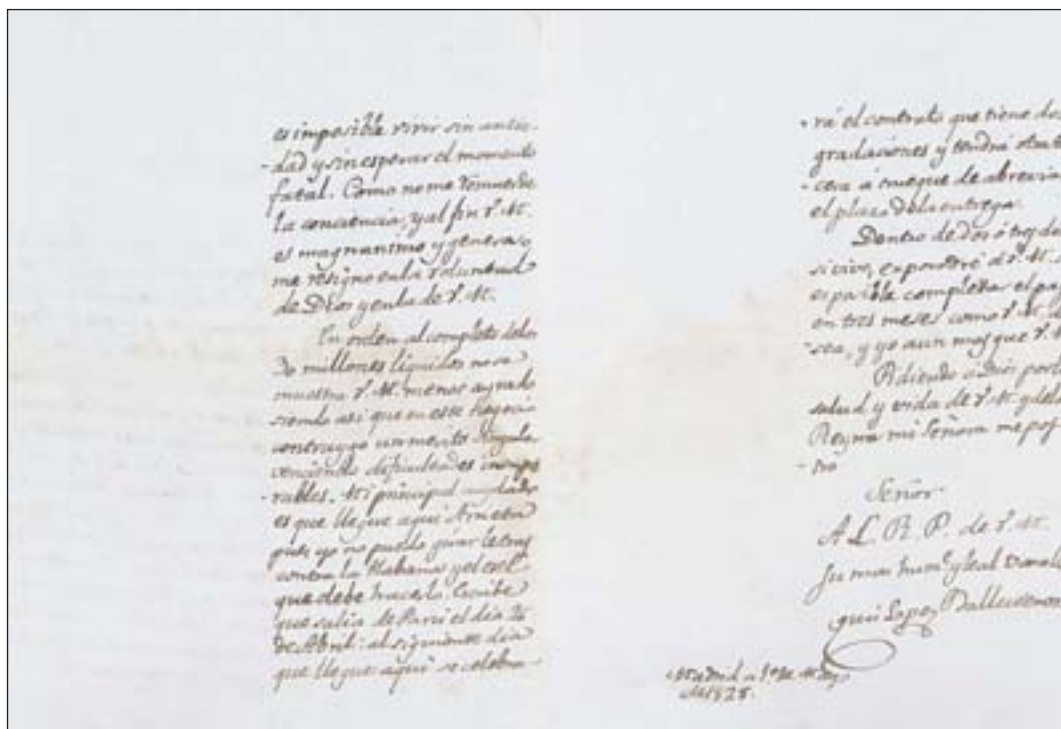 es imposible vivir sin ansie-
-dad y sin esperar el momento
fatal. Como no me remuerde
la conciencia, y al fin V. M.
es magnanimo y generoso
me resigno en la voluntad
de Dios y en la de V. M.
En orden al completo de los
30 millones liquidos no se
muestra V. M. menos agrade
siendo asi que en este negocio
contraygo un merito singula
venciendo dificultades insupe
-rables. Mi principal cuydado
es que llegue aqui Arrieta
pues yo no puedo girar letras
contra la Habana y el es el
que debe hacerlo. Escribe
que salia de Paris el dia 26
de Abril: al siguiente dia
que llegue aqui se celebra-
-rá el contrato que tiene dos
gradaciones y tendrá otra te
-cera á trueque de abrevia
el plazo de la entrega.
Dentro de dos ó tres dia
si vivo, expondré á V. M. si
es posible completar el pa
en tres meses como V. M. de
-sea, y yo aun mas que V. M.
Pidiendo a Dios por la
salud y vida de V. M. y de la
Reyna mi Señora me pos
-tro
Señor.
A L. R. P. de V. M.
Su mas hum.e y leal vasallo
Lopez Ballesteros
Madrid a 1º de Mayo
de 1825.